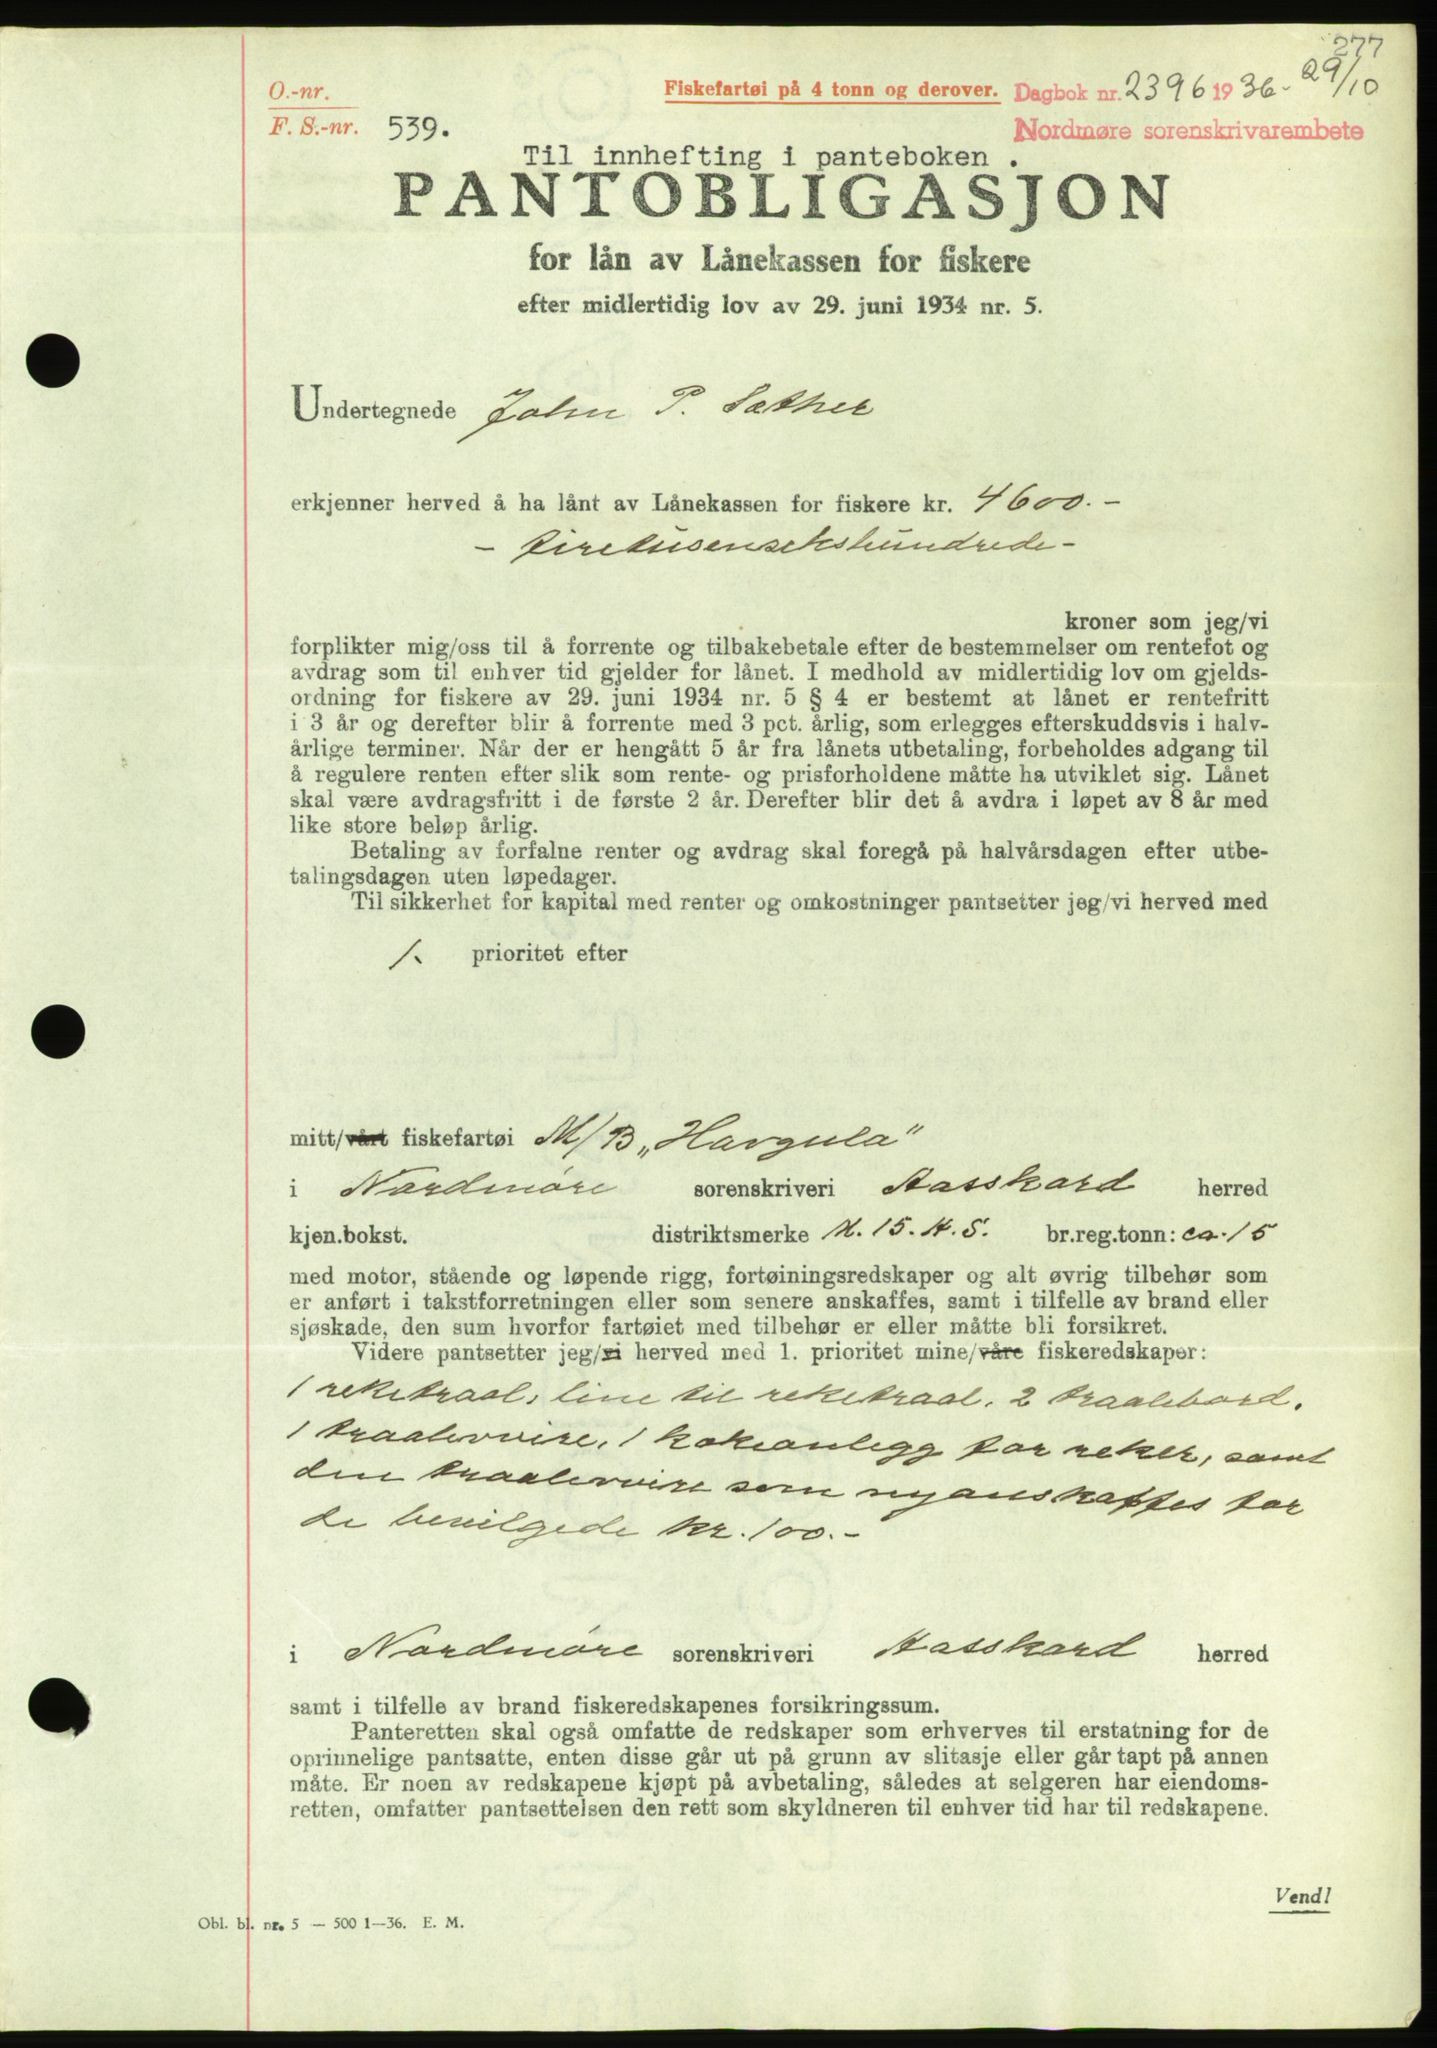 277
O.-nr.
Fiskefartøi på 4 tonn og derover.
Dagbok nr. 2396 1936 - 29/10
F. S.-nr. 539.
Nordmøre sorenskrivarembete
Til innhefting i panteboken .
PANTOBLIGASJON
for lån av Lånekassen for fiskere
efter midlertidig lov av 29. juni 1934 nr. 5.
Undertegnede John P. Sæther
erkjenner herved å ha lånt av Lånekassen for fiskere kr. 4600.-
- firetusensekshundrede -
kroner som jeg/vi
forplikter mig/oss til å forrente og tilbakebetale efter de bestemmelser om rentefot og
avdrag som til enhver tid gjelder for lånet. I medhold av midlertidig lov om gjelds-
ordning for fiskere av 29. juni 1934 nr. 5 § 4 er bestemt at lånet er rentefritt
i 3 år og derefter blir å forrente med 3 pct. årlig, som erlegges efterskuddsvis i halv-
årlige terminer. Når der er hengått 5 år fra lånets utbetaling, forbeholdes adgang til
å regulere renten efter slik som rente- og prisforholdene måtte ha utviklet sig. Lånet
skal være avdragsfritt i de første 2 år. Derefter blir det å avdra i løpet av 8 år med
like store beløp årlig.
Betaling av forfalne renter og avdrag skal foregå på halvårsdagen efter utbe-
talingsdagen uten løpedager.
Til sikkerhet for kapital med renter og omkostninger pantsetter jeg/vi herved med
1. prioritet efter
mitt/vårt fiskefartøi M/B „Havgula"
i Nordmøre sorenskriveri Aasskard herred
kjen.bokst. distriktsmerke M. 15. H. S. br.reg.tonn: ca. 15
med motor, stående og løpende rigg, fortøiningsredskaper og alt øvrig tilbehør som
er anført i takstforretningen eller som senere anskaffes, samt i tilfelle av brand eller
sjøskade, den sum hvorfor fartøiet med tilbehør er eller måtte bli forsikret.
Videre pantsetter jeg/vi herved med 1. prioritet mine/våre fiskeredskaper:
1 reketraal, line til reketraal, 2 traalebord,
1 traalerwire, 1 kokeanlegg for reker, samt
den traalerwire som nyanskaffes for
de bevilgede kr. 100.-
i Nordmøre sorenskriveri Aasskard herred
samt i tilfelle av brand fiskeredskapenes forsikringssum.
Panteretten skal også omfatte de redskaper som erhverves til erstatning for de
oprinnelige pantsatte, enten disse går ut på grunn av slitasje eller går tapt på annen
måte. Er noen av redskapene kjøpt på avbetaling, således at selgeren har eiendoms-
retten, omfatter pantsettelsen den rett som skyldneren til enhver tid har til redskapene.
Vend!
Obl. bl. nr. 5 — 500 1—36. E. M.